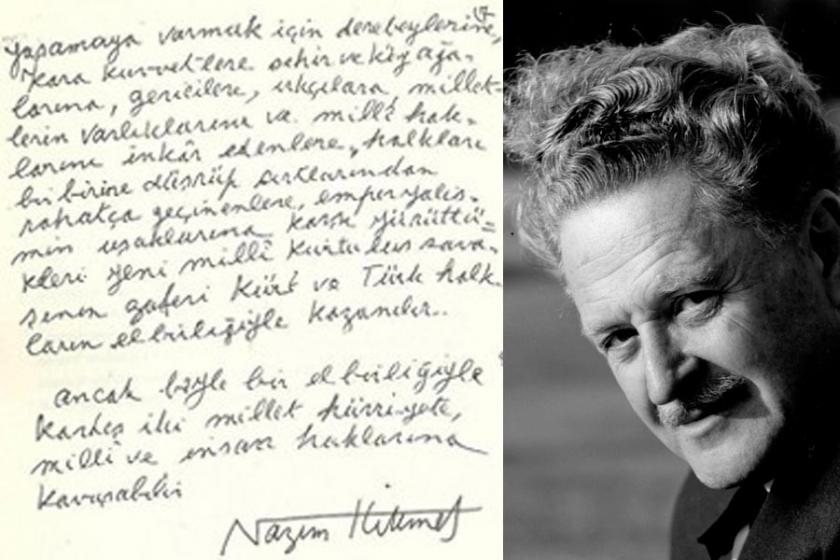 yaşamaya varmak için derebeylerine,
kara kuvvetlere şehir ve köy ağa-
larına, gericilere, ırkçılara, millet-
lerin varlıklarını ve millî hak-
larını inkâr edenlere, halkları
birbirine düşürüp sırtlarından
rahatça geçinenlere, emperyalis-
min uşaklarına karşı yürüttü-
kleri yeni millî kurtuluş sava-
şının zaferi Kürt ve Türk halk-
ların elbirliğiyle kazanılır..
ancak böyle bir elbirliğiyle
kardeş iki millet hürriyete,
millî ve insan haklarına
kavuşabilir
Nazım Hikmet